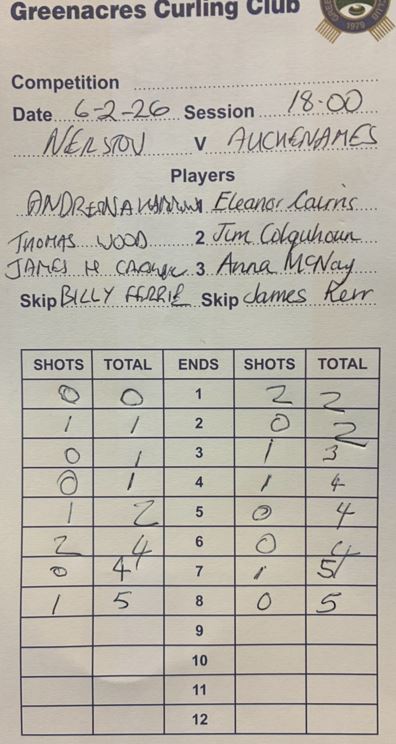 Greenacres Curling Club
1979
Competition
Date 6-2-26 Session 18.00
NERSTON V AUCHENAMES
Players
ANDREENA 1 Eleanor Cairns
THOMAS WOOD 2 Jim Colquhoun
JAMES H 3 Anna McNay
Skip BILLY FERRIE Skip James Kerr
SHOTS TOTAL ENDS SHOTS TOTAL
0 0 1 2 2
1 1 2 0 2
0 1 3 1 3
0 1 4 1 4
1 2 5 0 4
2 4 6 0 4
0 4 7 1 5
1 5 8 0 5
9
10
11
12